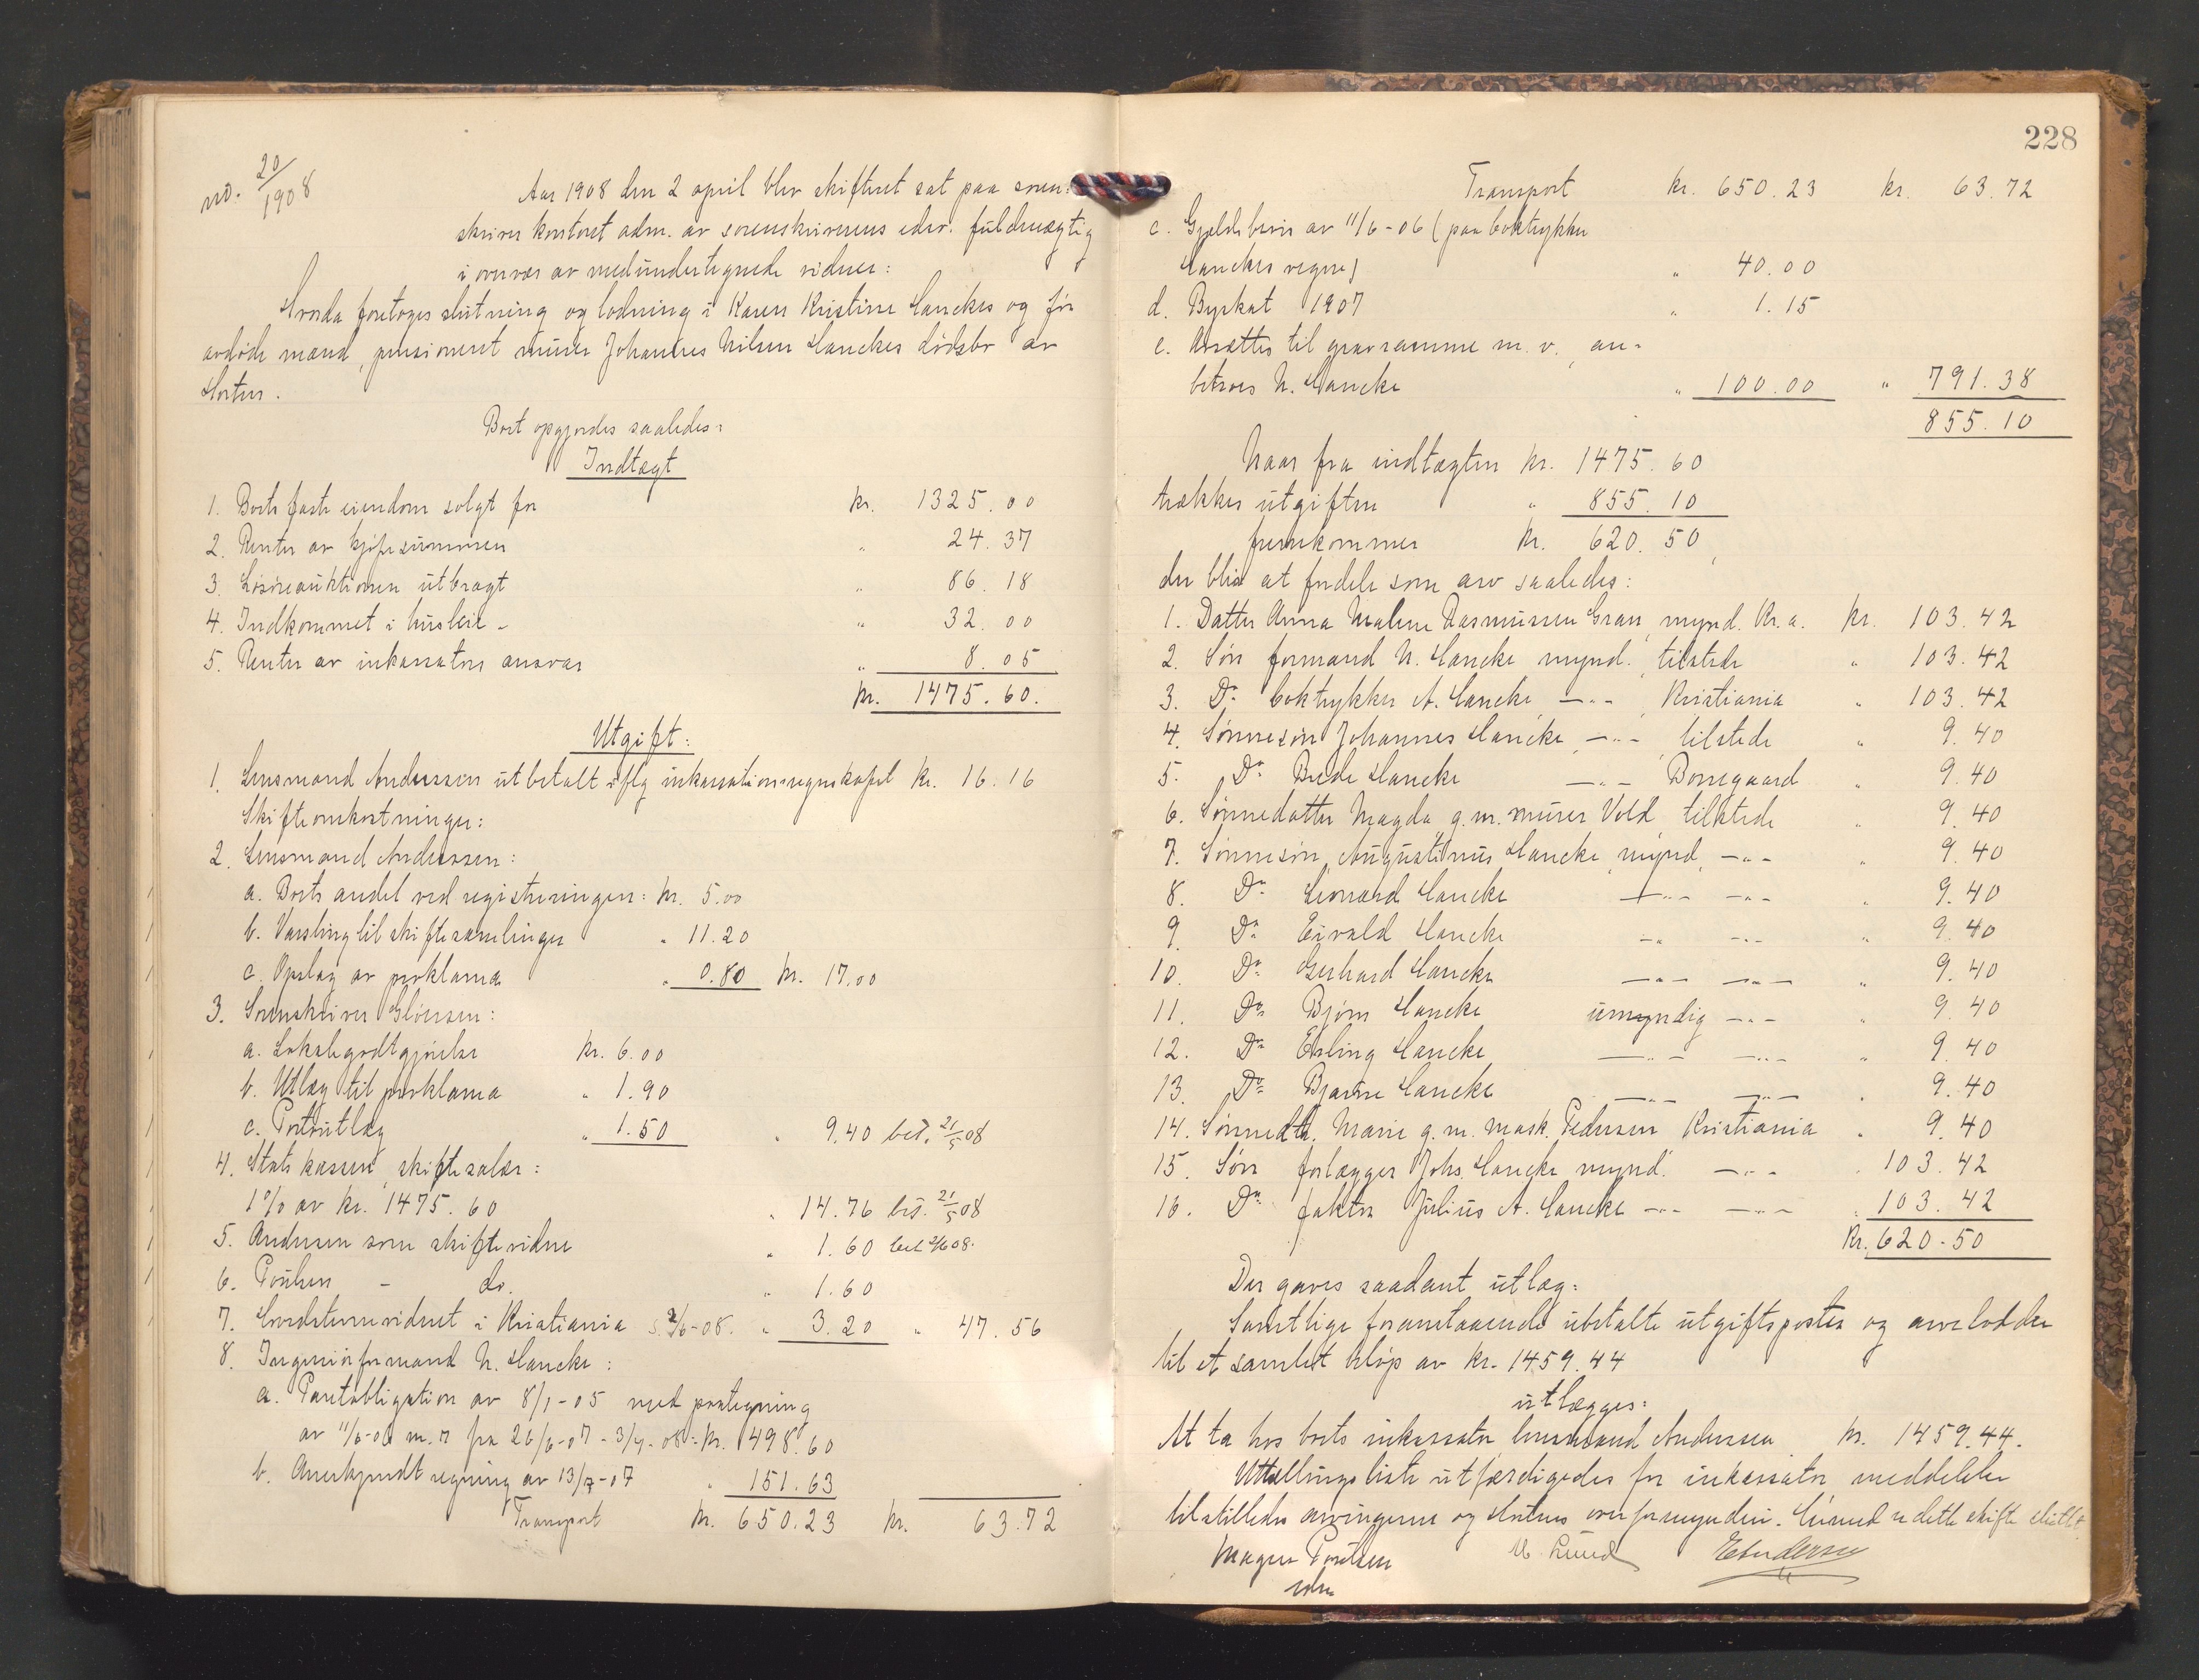 no. 20/1908
Aar 1908 den 2 april blev skifteret sat paa soren-
skriver kontoret adm. av sorenskriverens edsv. fuldmægtig
i overvær av medundertegnede vidner:
Hvorda foretoges slutning og lodning i Karen Kristine Hanckes og før
avdøde mand, pensioneret murer Johannes Nilsen Hanckes dødsbo av
Horten.
Boet opgjordes saaledes:
Indtægt
1. Boets faste eiendom solgt for kr. 1325.00
2. Renter av kjøpesummen " 24.37
3. Løsøreauktionen utbragt " 86.18
4. Indkommet i husleie - " 32.00
5. Renter av inkassators ansvar " 8.05
kr. 1475.60.
Utgift:
1. Lensmand Anderssen utbetalt iflg inkassationsregnskapet kr. 16.16
Skifteomkostninger:
2. Lensmand Anderssen:
a. Boets andel ved registreringen: kr. 5.00
b. Varsling til skiftesamlinger " 11.20
c. Opslag av proklama " 0.80 kr. 17.00
3. Sorenskriver Gløersen:
a. Lokalegodtgjørelse kr. 6.00
b. Utlæg til proklama " 1.90
c. Portoutlæg " 1.50 " 9.40 bet. 21/5 08
4. Statskassen, skiftesalær:
1% av kr. 1475.60 " 14.76 bet. 21/5 08
5. Andersen som skiftevidne " 1.60 bet 2/6 08.
6. Poulsen - do. " 1.60
7. Hovedstevnevidnet i Kristiania s. 2/6-08. " 3.20 " 47.56
8. Ingeniørformand N. Hancke:
a. Panteobligation av 8/1-05 med paategning
av 11/6-06 m. r. fra 26/6-07 - 3/4-08: kr. 498.60
b. Anerkjendt regning av 13/7-07 " 151.63
Transport kr. 650.23 kr. 63.72
228
Transport kr. 650.23 kr. 63.72
c. Gjeldsbevis av 11/6-06 (paa boktrykker
Hanckes vegne) " 40.00
d. Byskat 1907 " 1.15
e. Avsættes til gravramme m. v., an-
betroes N. Hancke " 100.00 " 791.38
855.10
Naar fra indtægten kr. 1475.60
trækkes utgiften " 855.10
fremkommer kr. 620.50,
der blir at fordele som arv saaledes:
1. Datter Anna Malene Rasmussen Gran, mynd. Kr.a. kr. 103.42
2. Søn formand N. Hancke mynd. tilstede " 103.42
3. Do boktrykker A. Hancke -"- Kristiania " 103.42
4. Sønnesøn Johannes Hancke -"- tilstede " 9.40
5. Do Brede Hancke -"- Borregaard " 9.40
6. Sønnedatter Magda, g.m. murer Vold, tilstede " 9.40
7. Sønnesøn, Augustinus Hancke, mynd, -"- " 9.40
8. Do Leonard Hancke -"- -"- " 9.40
9. Do Eivald Hancke -"- -"- " 9.40
10. Do Gerhard Hancke -"- -"- " 9.40
11. Do Bjørn Hancke umyndig -"- " 9.40
12. Do Erling Hancke -"- -"- " 9.40
13. Do Bjarne Hancke -"- -"- " 9.40
14. Sønnedtr. Marie g. m. mask. Pedersen Kristiania " 9.40
15. Søn forlægger Johs. Hancke mynd. -"- " 103.42
16. Do faktor Julius A. Hancke -"- -"- " 103.42
Kr. 620.50
Der gaves saadant utlæg:
Samtlige foranstaaende ubetalte utgiftsposter og arvelodder
til et samlet beløp av kr. 1459.44
utlægges:
At ta hos boets inkassator lensmand Anderssen kr. 1459.44.
Uttællingsliste utfærdigedes for inkassator, meddelelse
tilstilledes arvingerne og Hortens overformynderi. Hermed er dette skifte sluttet
Magnus Poulsen M. Lund E Andersen